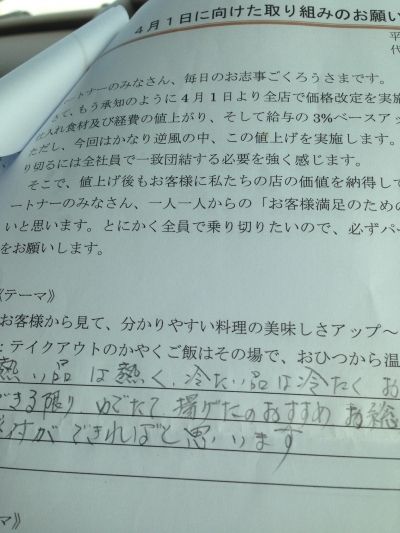 4月1日に向けた取り組みのお願い
平
代
ートナーのみなさん、毎日のお志事ごくろうさまです。
さて、もう承知のように4月1日より全店で価格改定を実施
仕入れ食材及び経費の値上がり、そして給与の3%ベースアッ
ただし、今回はかなり逆風の中、この値上げを実施します。
り切るには全社員で一致団結する必要を強く感じます。
そこで、値上げ後もお客様に私たちの店の価値を納得して
ートナーのみなさん、一人一人からの「お客様満足のための
いと思います。とにかく全員で乗り切りたいので、必ずパー
をお願いします。
《テーマ》
お客様から見て、分かりやすい料理の美味しさアップ～
：テイクアウトのかやくご飯はその場で、おひつから温
熱い品は熱く、冷たい品は冷たく お
できる限り、ゆでたて、揚げたのおすすめ、お総
付ができればと思います
マ》